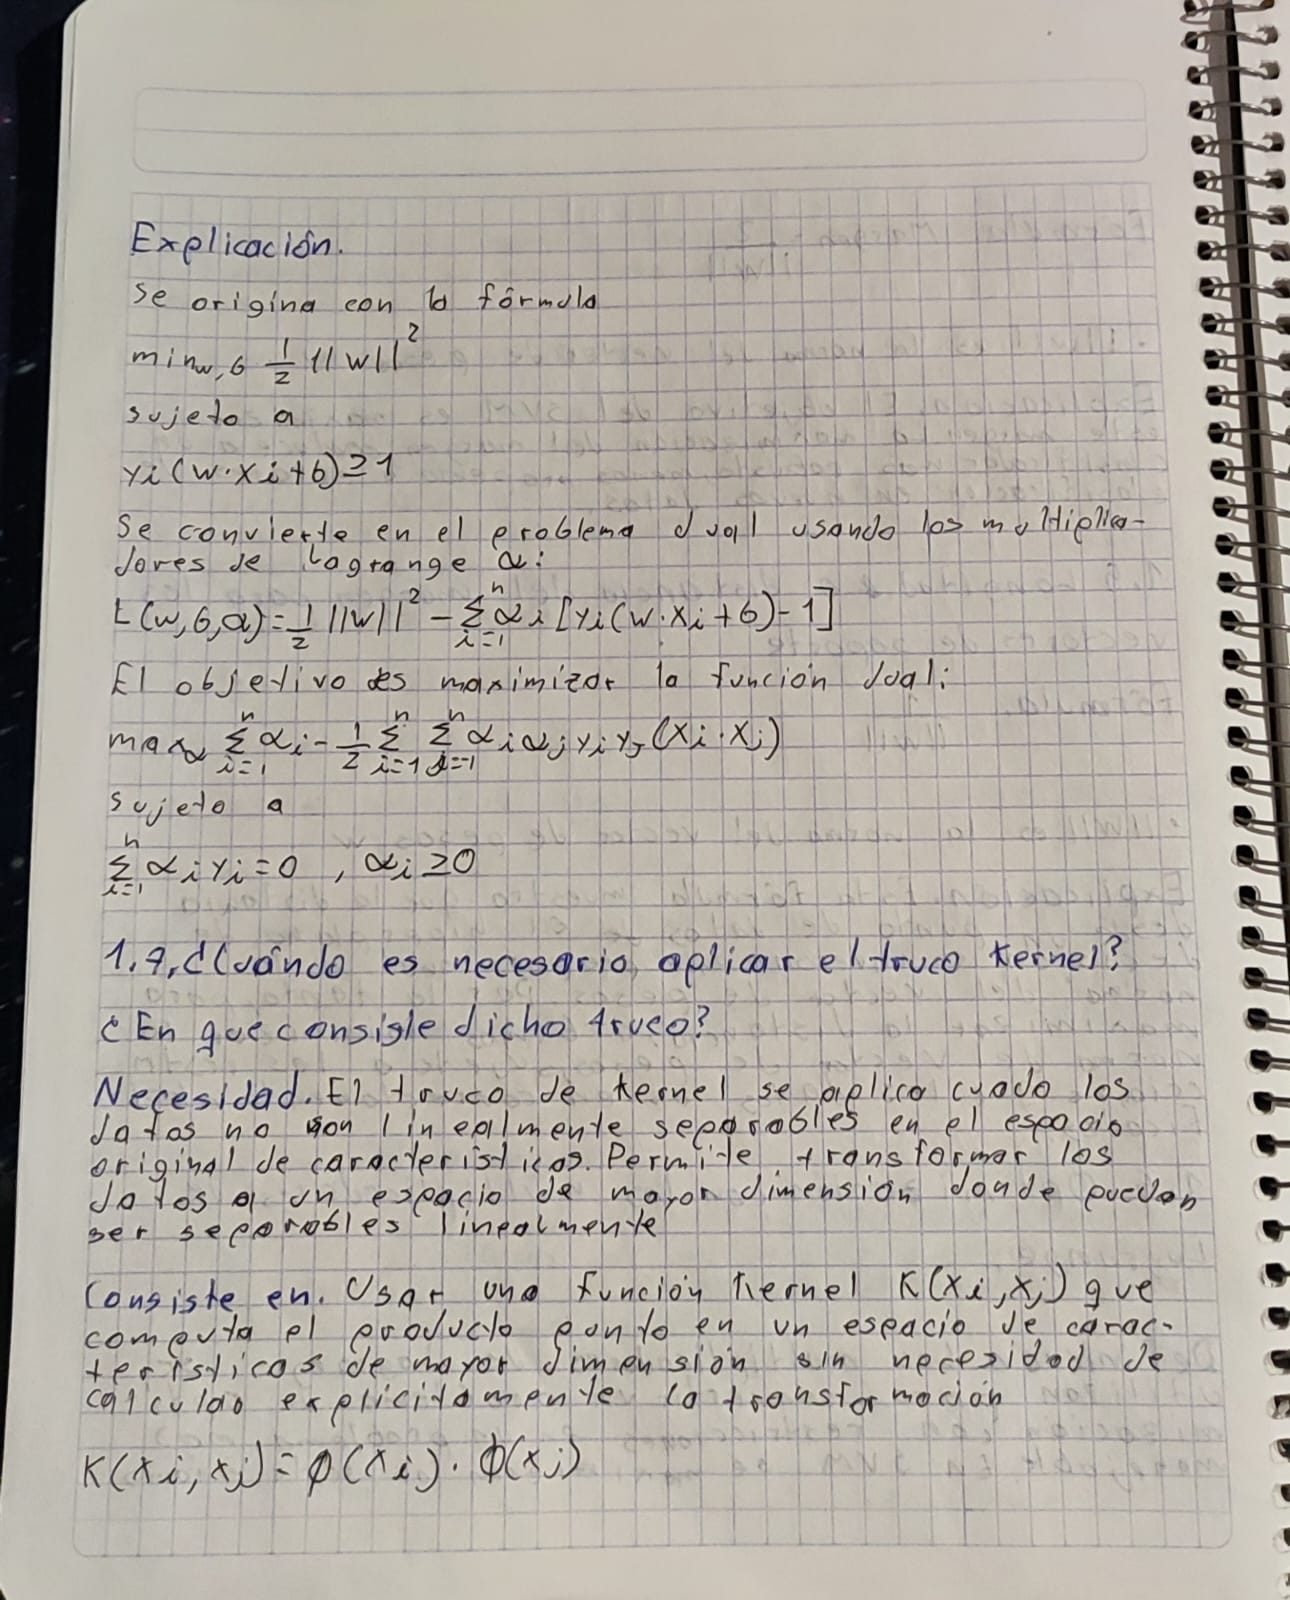 Explicación.
Se origina con la fórmula
min_{w,b} 1/2 ||w||²
sujeto a
yi(w·xi+b)≥1
Se convierte en el problema dual usando los multiplica-
dores de Lagrange α:
L(w,b,α)=1/2 ||w||² - Σ_{i=1}^{n} αi [yi(w·xi+b)-1]
El objetivo es maximizar la función dual:
max_α Σ_{i=1}^{n} αi - 1/2 Σ_{i=1}^{n} Σ_{j=1}^{n} αi αj yi yj (xi·xj)
sujeto a
Σ_{i=1}^{n} αi yi = 0 , αi ≥ 0
1.7. ¿Cuándo es necesario aplicar el truco kernel?
¿En que consiste dicho truco?
Necesidad. El truco de kernel se aplica cuado los
datos no son linealmente separables en el espacio
original de caracteristicas. Permite transformar los
datos a un espacio de mayor dimensión donde puedan
ser separables linealmente
Consiste en. Usar una función kernel K(xi,xj) que
computa el producto punto en un espacio de carac-
terísticas de mayor dimensión sin necesidad de
calculao explicitamente la transformación
K(xi,xj)=φ(xi)·φ(xj)